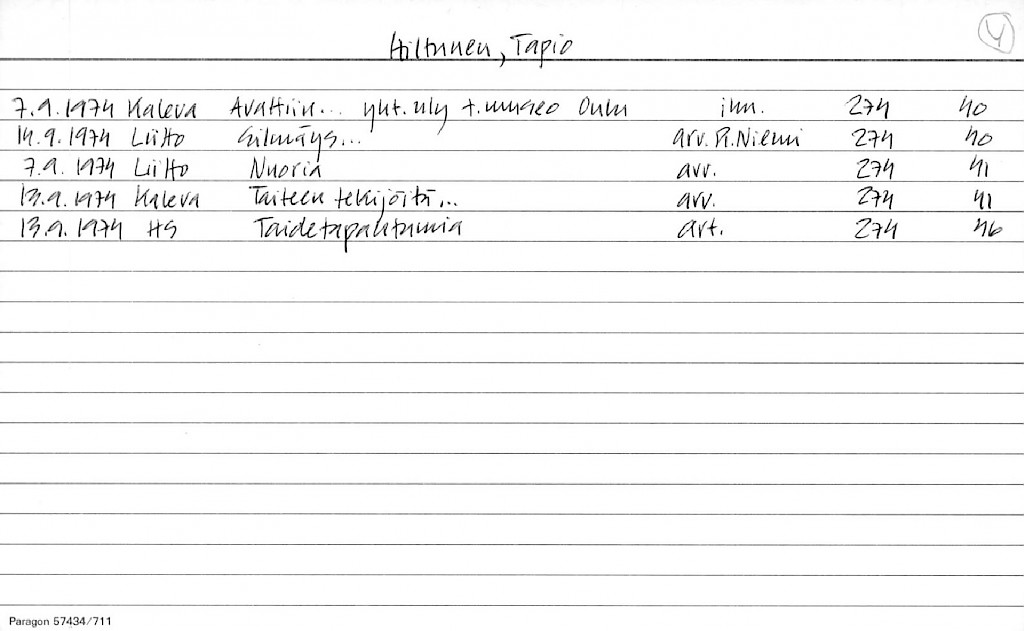 Hiltunen, Tapio
Y
7.9.1974 Kaleva Avattiin... yht.näy t.museo Oulu ilm. 274 40
14.9.1974 Liitto Silmäys... arv. R.Niemi 274 40
7.9.1974 Liitto Nuoria arv. 274 41
13.9.1974 Kaleva Taiteen tekijöitä... arv. 274 41
13.9.1974 HS Taidetapahtumia art. 274 46
Paragon 57434/711